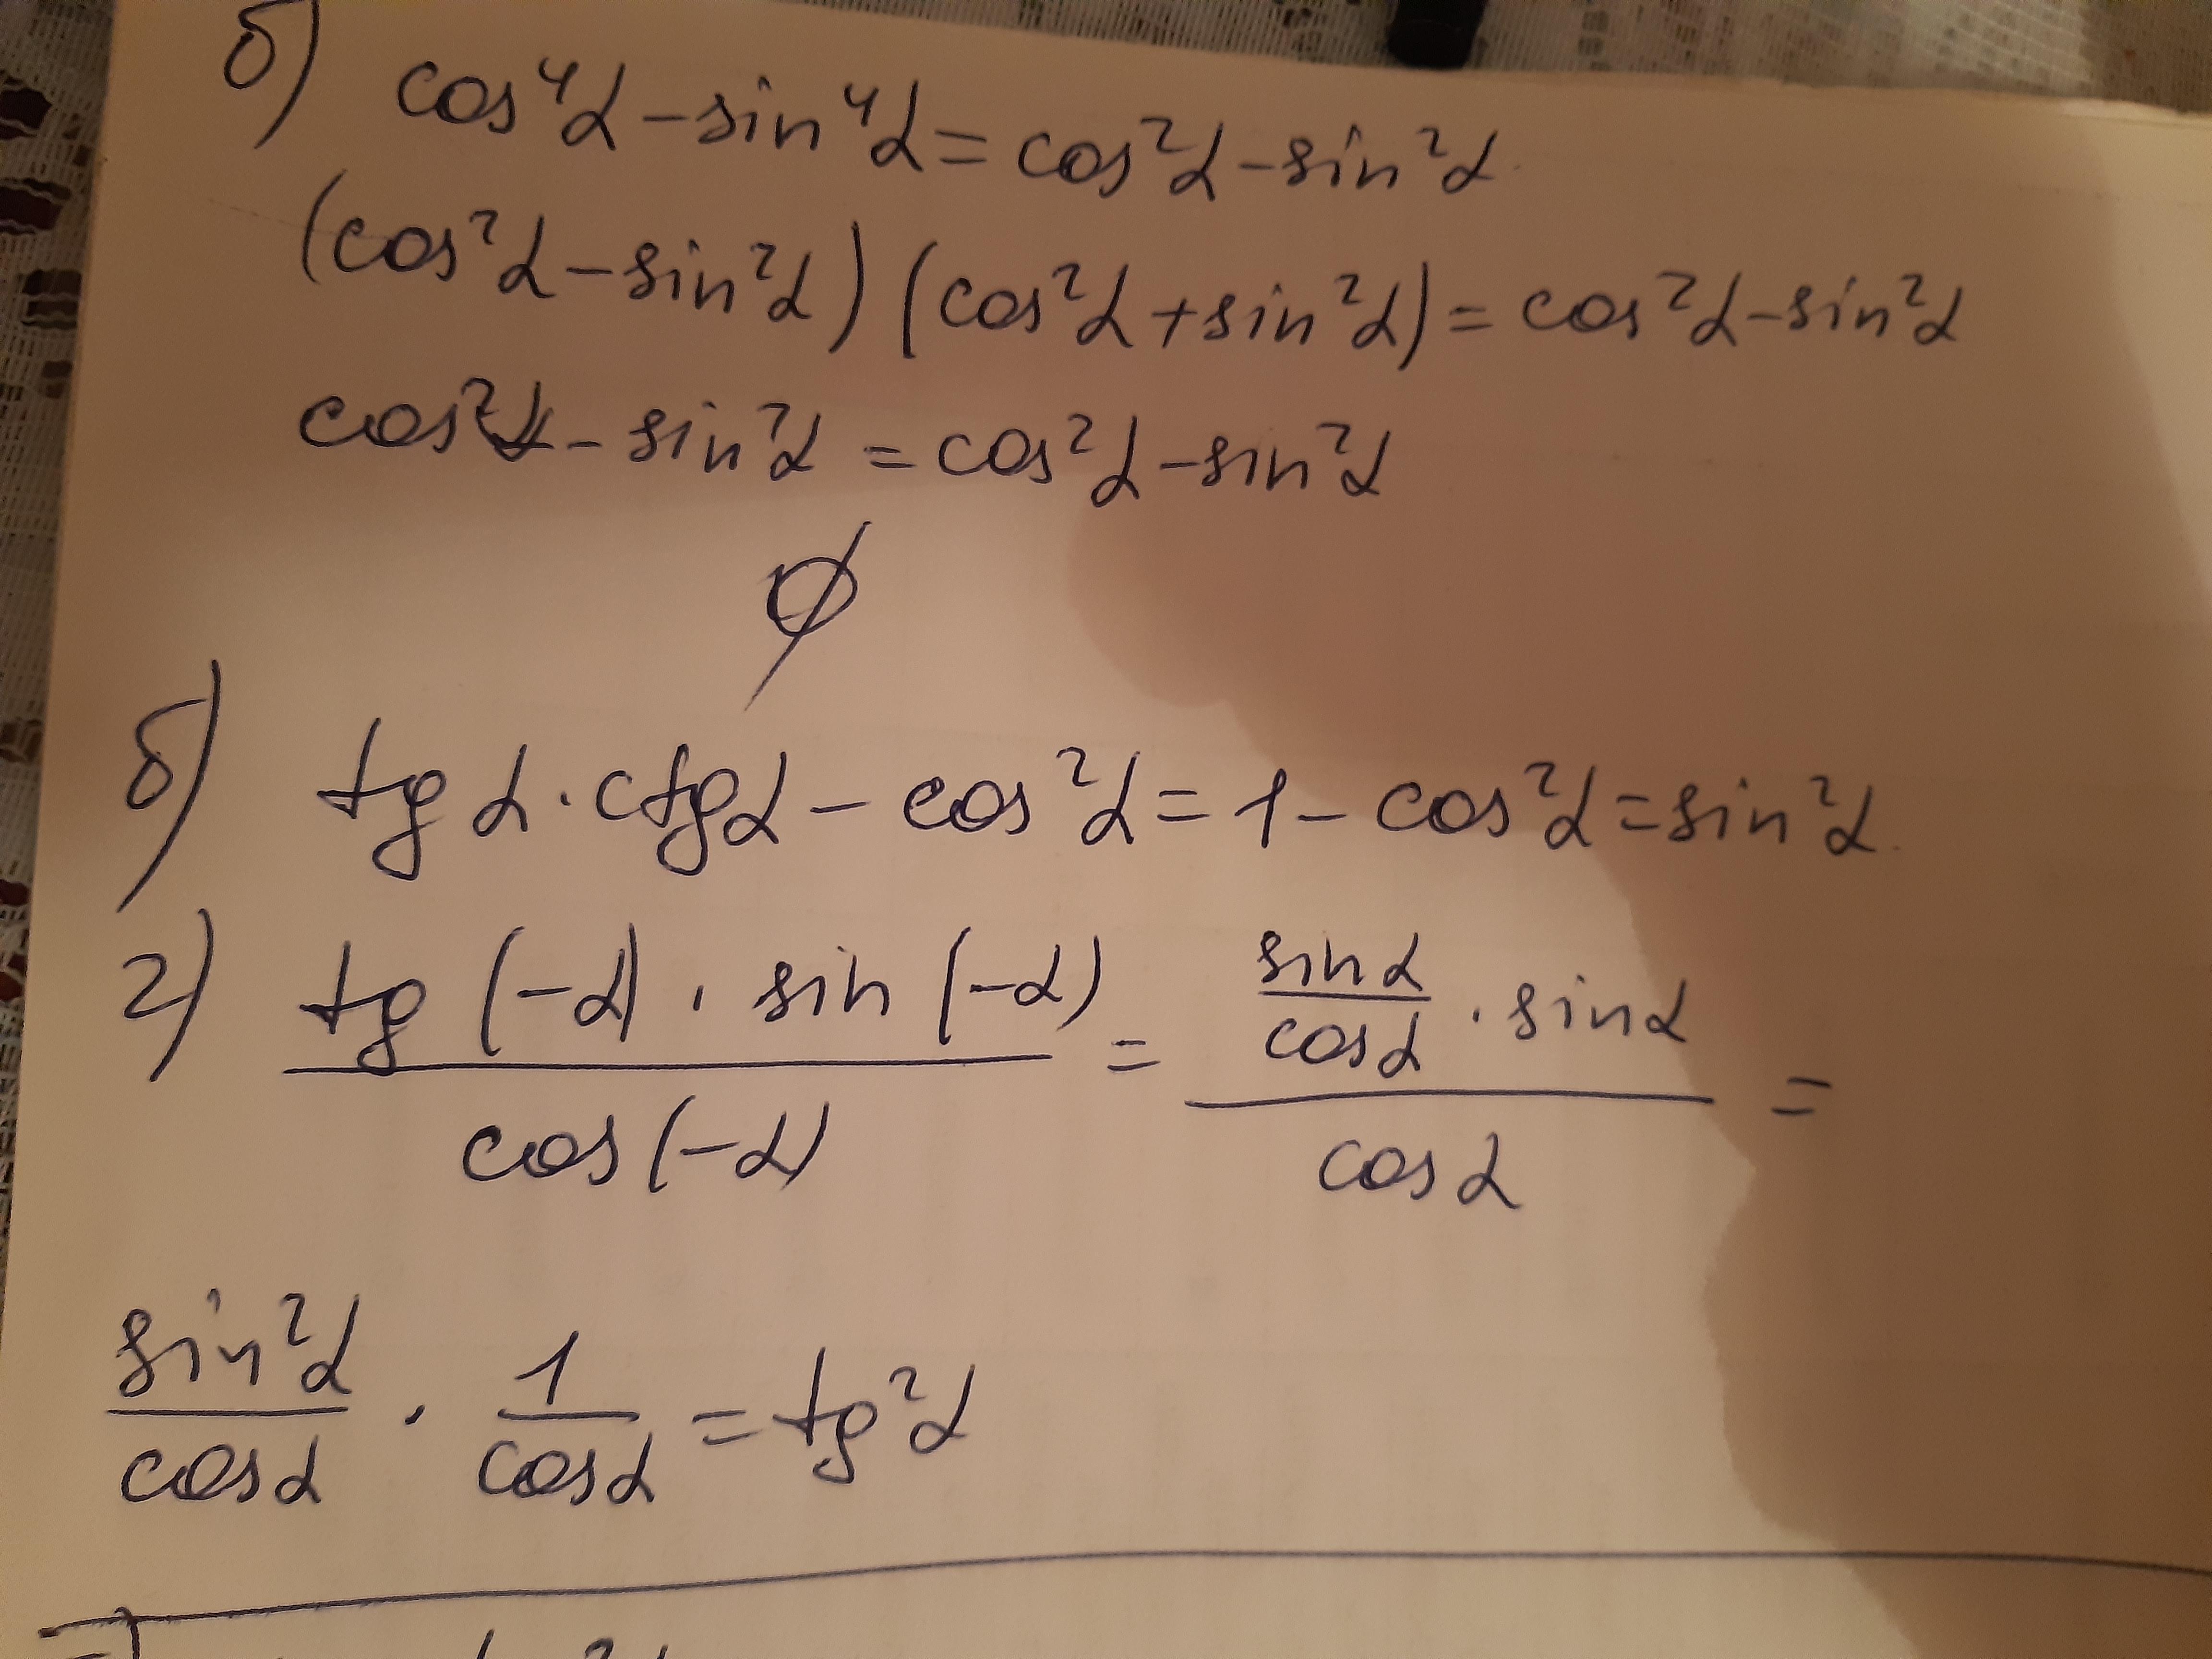 б) cos⁴α - sin⁴α = cos²α - sin²α
(cos²α - sin²α)(cos²α + sin²α) = cos²α - sin²α
cos²α - sin²α = cos²α - sin²α
∅
б) tg α · ctgα - cos²α = 1 - cos²α = sin²α
г) (tg(-α) · sin(-α))/(cos(-α)) = (sinα/cosα · sinα)/(cosα) =
sin²α/cosα · 1/cosα = tg²α